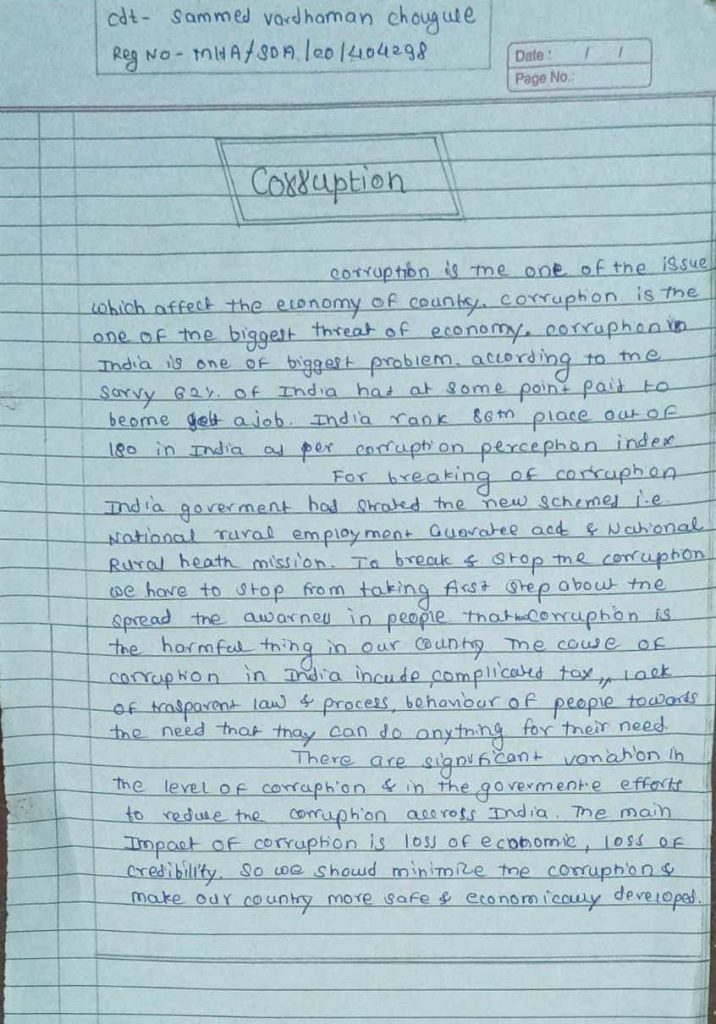 cdt- Sammed vardhaman chougule
Reg No - MHA/SDA/20/404298
Date : / /
Page No.:
Corruption
corruption is the one of the issue
which affect the economy of country. corruption is the
one of the biggest threat of economy. corruption in
India is one of biggest problem. according to the
sarvy 62%. of India had at some point paid to
beome get a job. India rank 86th place out of
180 in India as per corruption perception index
For breaking of corruption
India goverment had strated the new schemes i.e.
National rural employment Guaratee act & National
Rural heath mission. To break & stop the corruption
we have to stop from taking first step about the
spread the awarnes in people that corruption is
the harmful thing in our country The cause of
corruption in India incude complicated tax, lack
of trasparent law & process, behaviour of people towards
the need that thay can do anything for their need.
There are significant variation in
the level of corruption & in the goverment efforts
to reduse the corruption accross India. The main
Impact of corruption is loss of economic, loss of
credibility. So we should minimize the corruption &
make our country more safe & economicauy developed.